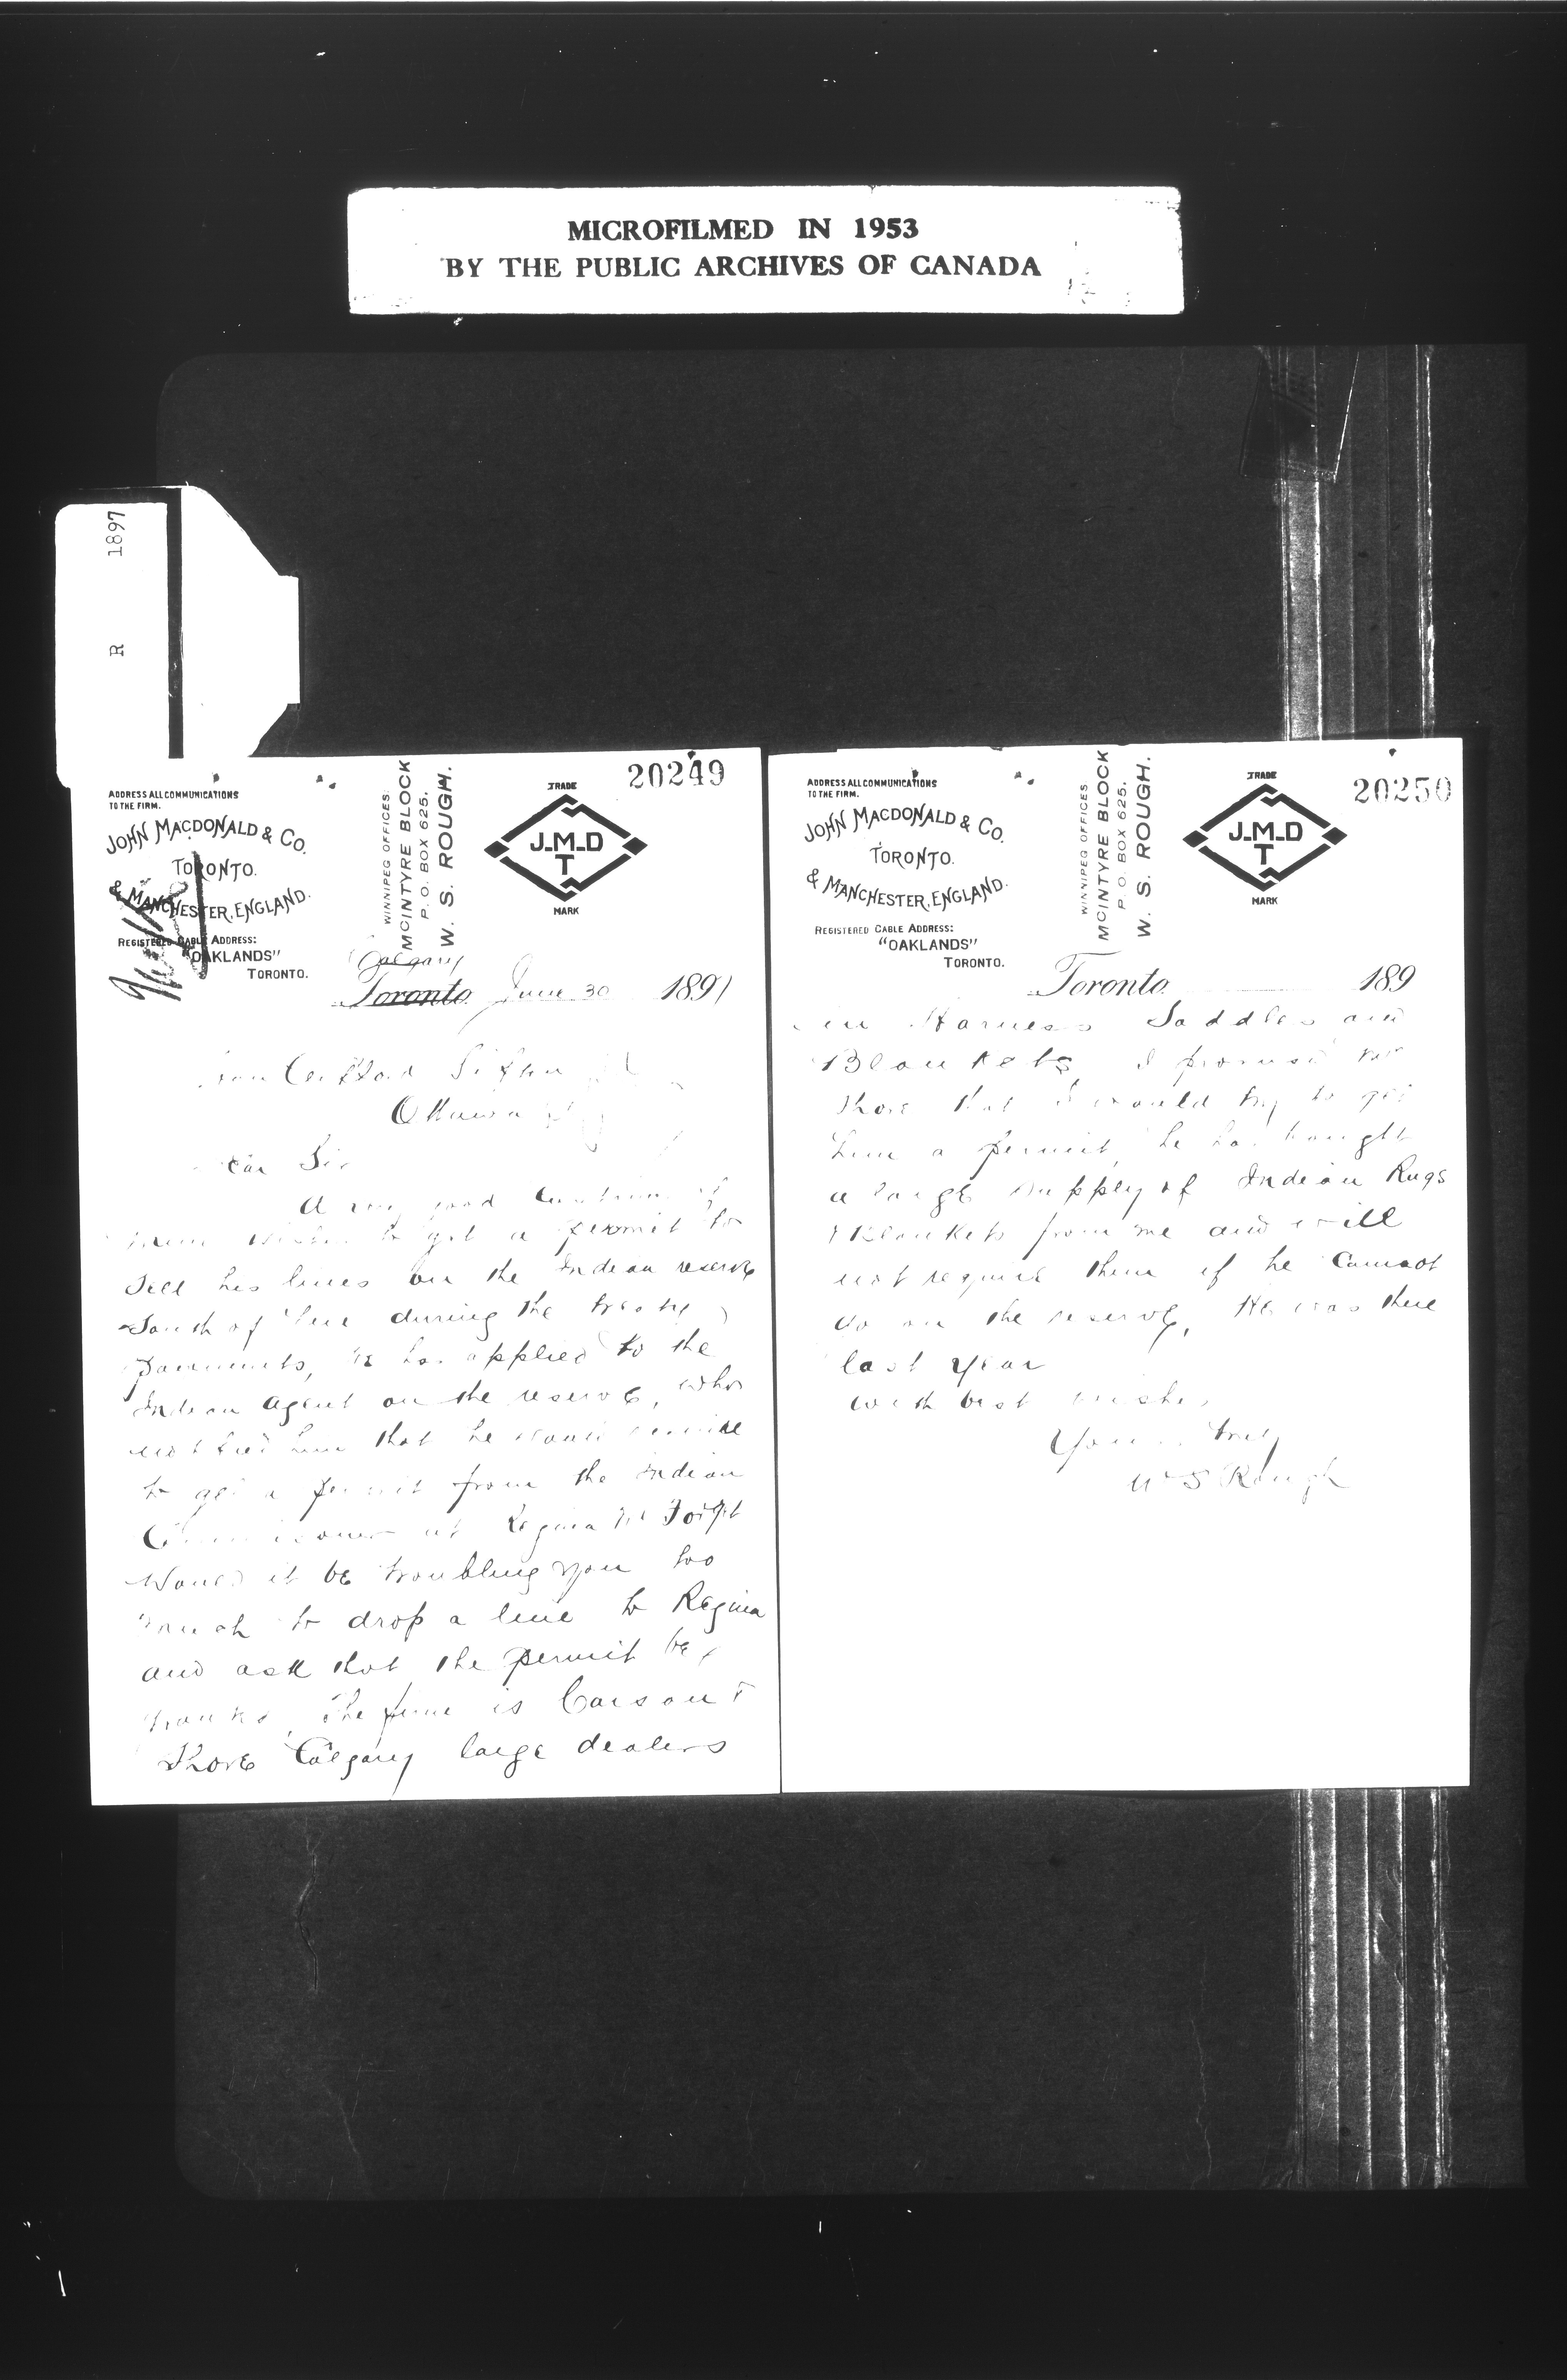 MICROFILMED IN 1953
BY THE PUBLIC ARCHIVES OF CANADA
R 1897
20249
ADDRESS ALL COMMUNICATIONS
TO THE FIRM.
JOHN MACDONALD & CO.
TORONTO.
& MANCHESTER, ENGLAND.
REGISTERED CABLE ADDRESS:
"OAKLANDS"
TORONTO.
WINNIPEG OFFICES:
MCINTYRE BLOCK
P. O. BOX 625.
W. S. ROUGH.
TRADE
J.M.D
T
MARK
Calgary
Toronto June 30 1897
Hon Clifford Sifton
Ottawa
Dear Sir
A very good customer of
mine wishes to get a permit to
sell his lines on the Indian reserve
South of here during the treaty
payments, he has applied to the
Indian agent on the reserve, who
notified him that he would require
to get a permit from the Indian
Commissioner at Regina Mr Forget
Would it be troubling you too
much to drop a line to Regina
and ask that the permit be
granted. The firm is Carson &
Shore Calgary large dealers
20250
ADDRESS ALL COMMUNICATIONS
TO THE FIRM.
JOHN MACDONALD & CO.
TORONTO.
& MANCHESTER, ENGLAND.
REGISTERED CABLE ADDRESS:
"OAKLANDS"
TORONTO.
WINNIPEG OFFICES
MCINTYRE BLOCK
P. O. BOX 625.
W. S. ROUGH.
TRADE
J.M.D
T
MARK
Toronto 189
in Harness Saddles and
Blankets I promised Mr
Shore that I would try to get
him a permit, he has bought
a large supply of Indian Rugs
& Blankets from me and will
not require them if he cannot
go on the reserve, He was there
last year
with best wishes
Yours truly
W S Rough